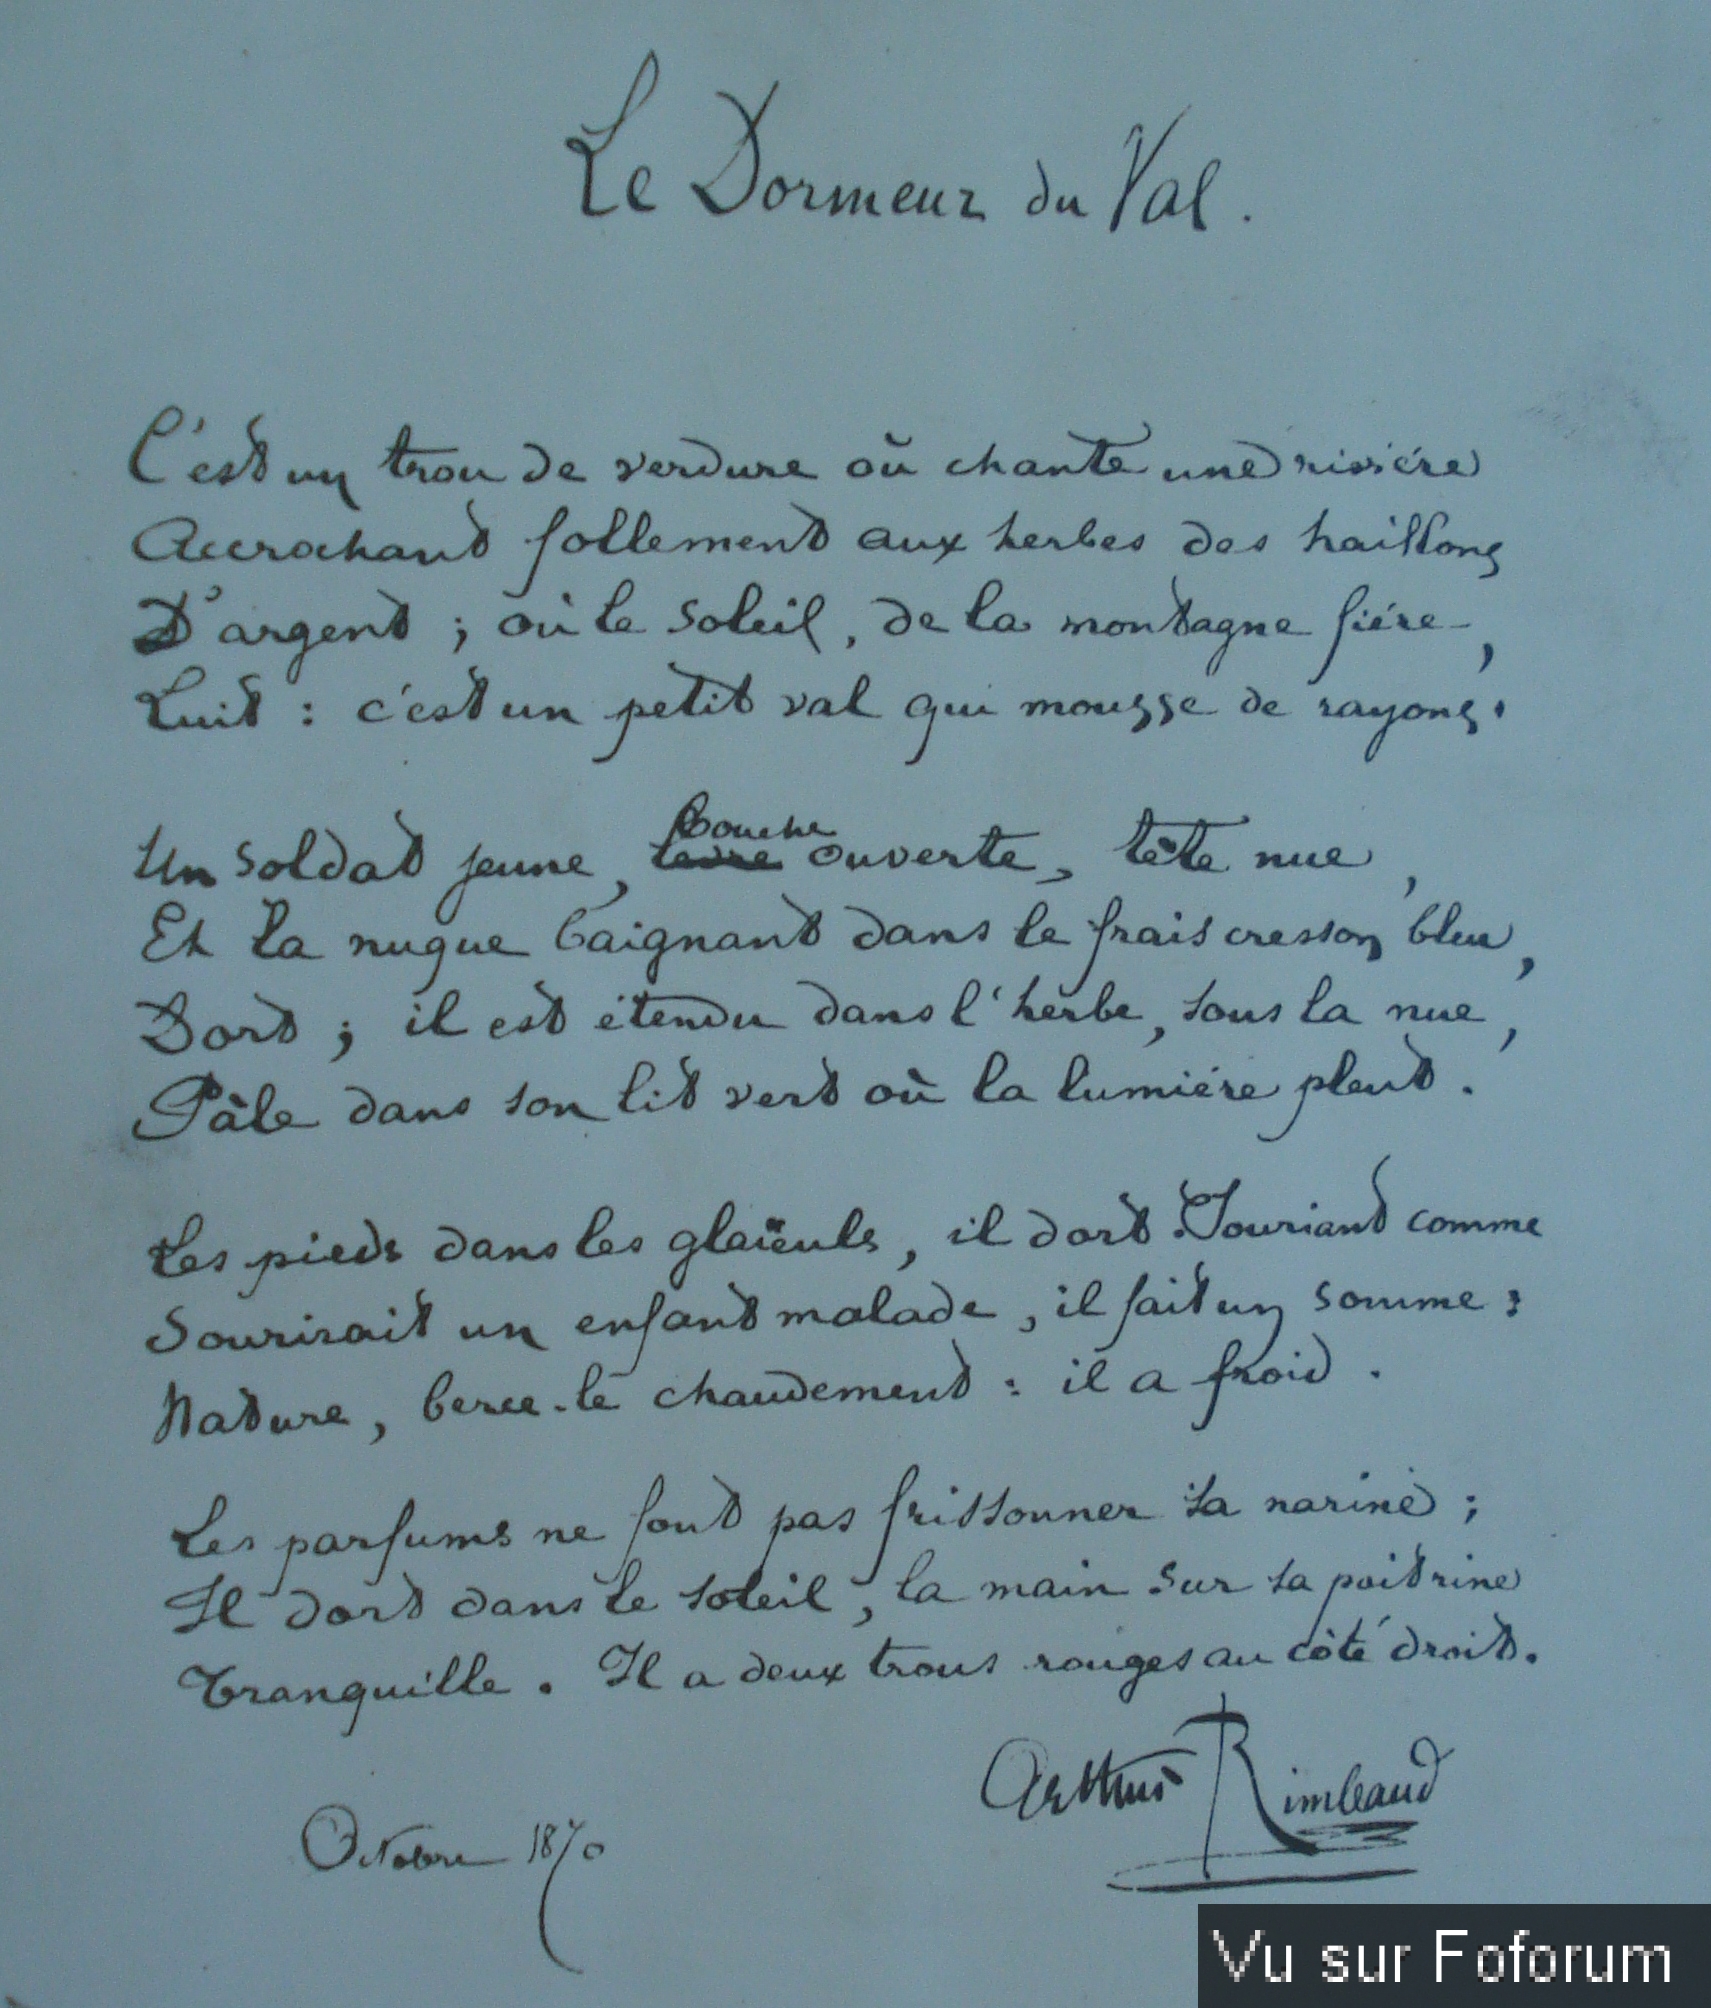 Le Dormeur du Val.
C'est un trou de verdure où chante une riviére
Accrochant follement aux herbes des haillons
D'argent ; où le soleil, de la montagne fiére,
Luit : c'est un petit val qui mousse de rayons.
Un soldat jeune, lèvre bouche ouverte, tête nue,
Et la nuque baignant dans le frais cresson bleu,
Dort ; il est étendu dans l'herbe, sous la nue,
Pâle dans son lit vert où la lumiére pleut.
Les pieds dans les glaïeuls, il dort. Souriant comme
Sourirait un enfant malade, il fait un somme :
Nature, berce-le chaudement : il a froid.
Les parfums ne font pas frissonner sa narine ;
Il dort dans le soleil, la main sur sa poitrine
Tranquille. Il a deux trous rouges au côté droit.
Arthur Rimbaud
Octobre 1870
Vu sur Foforum